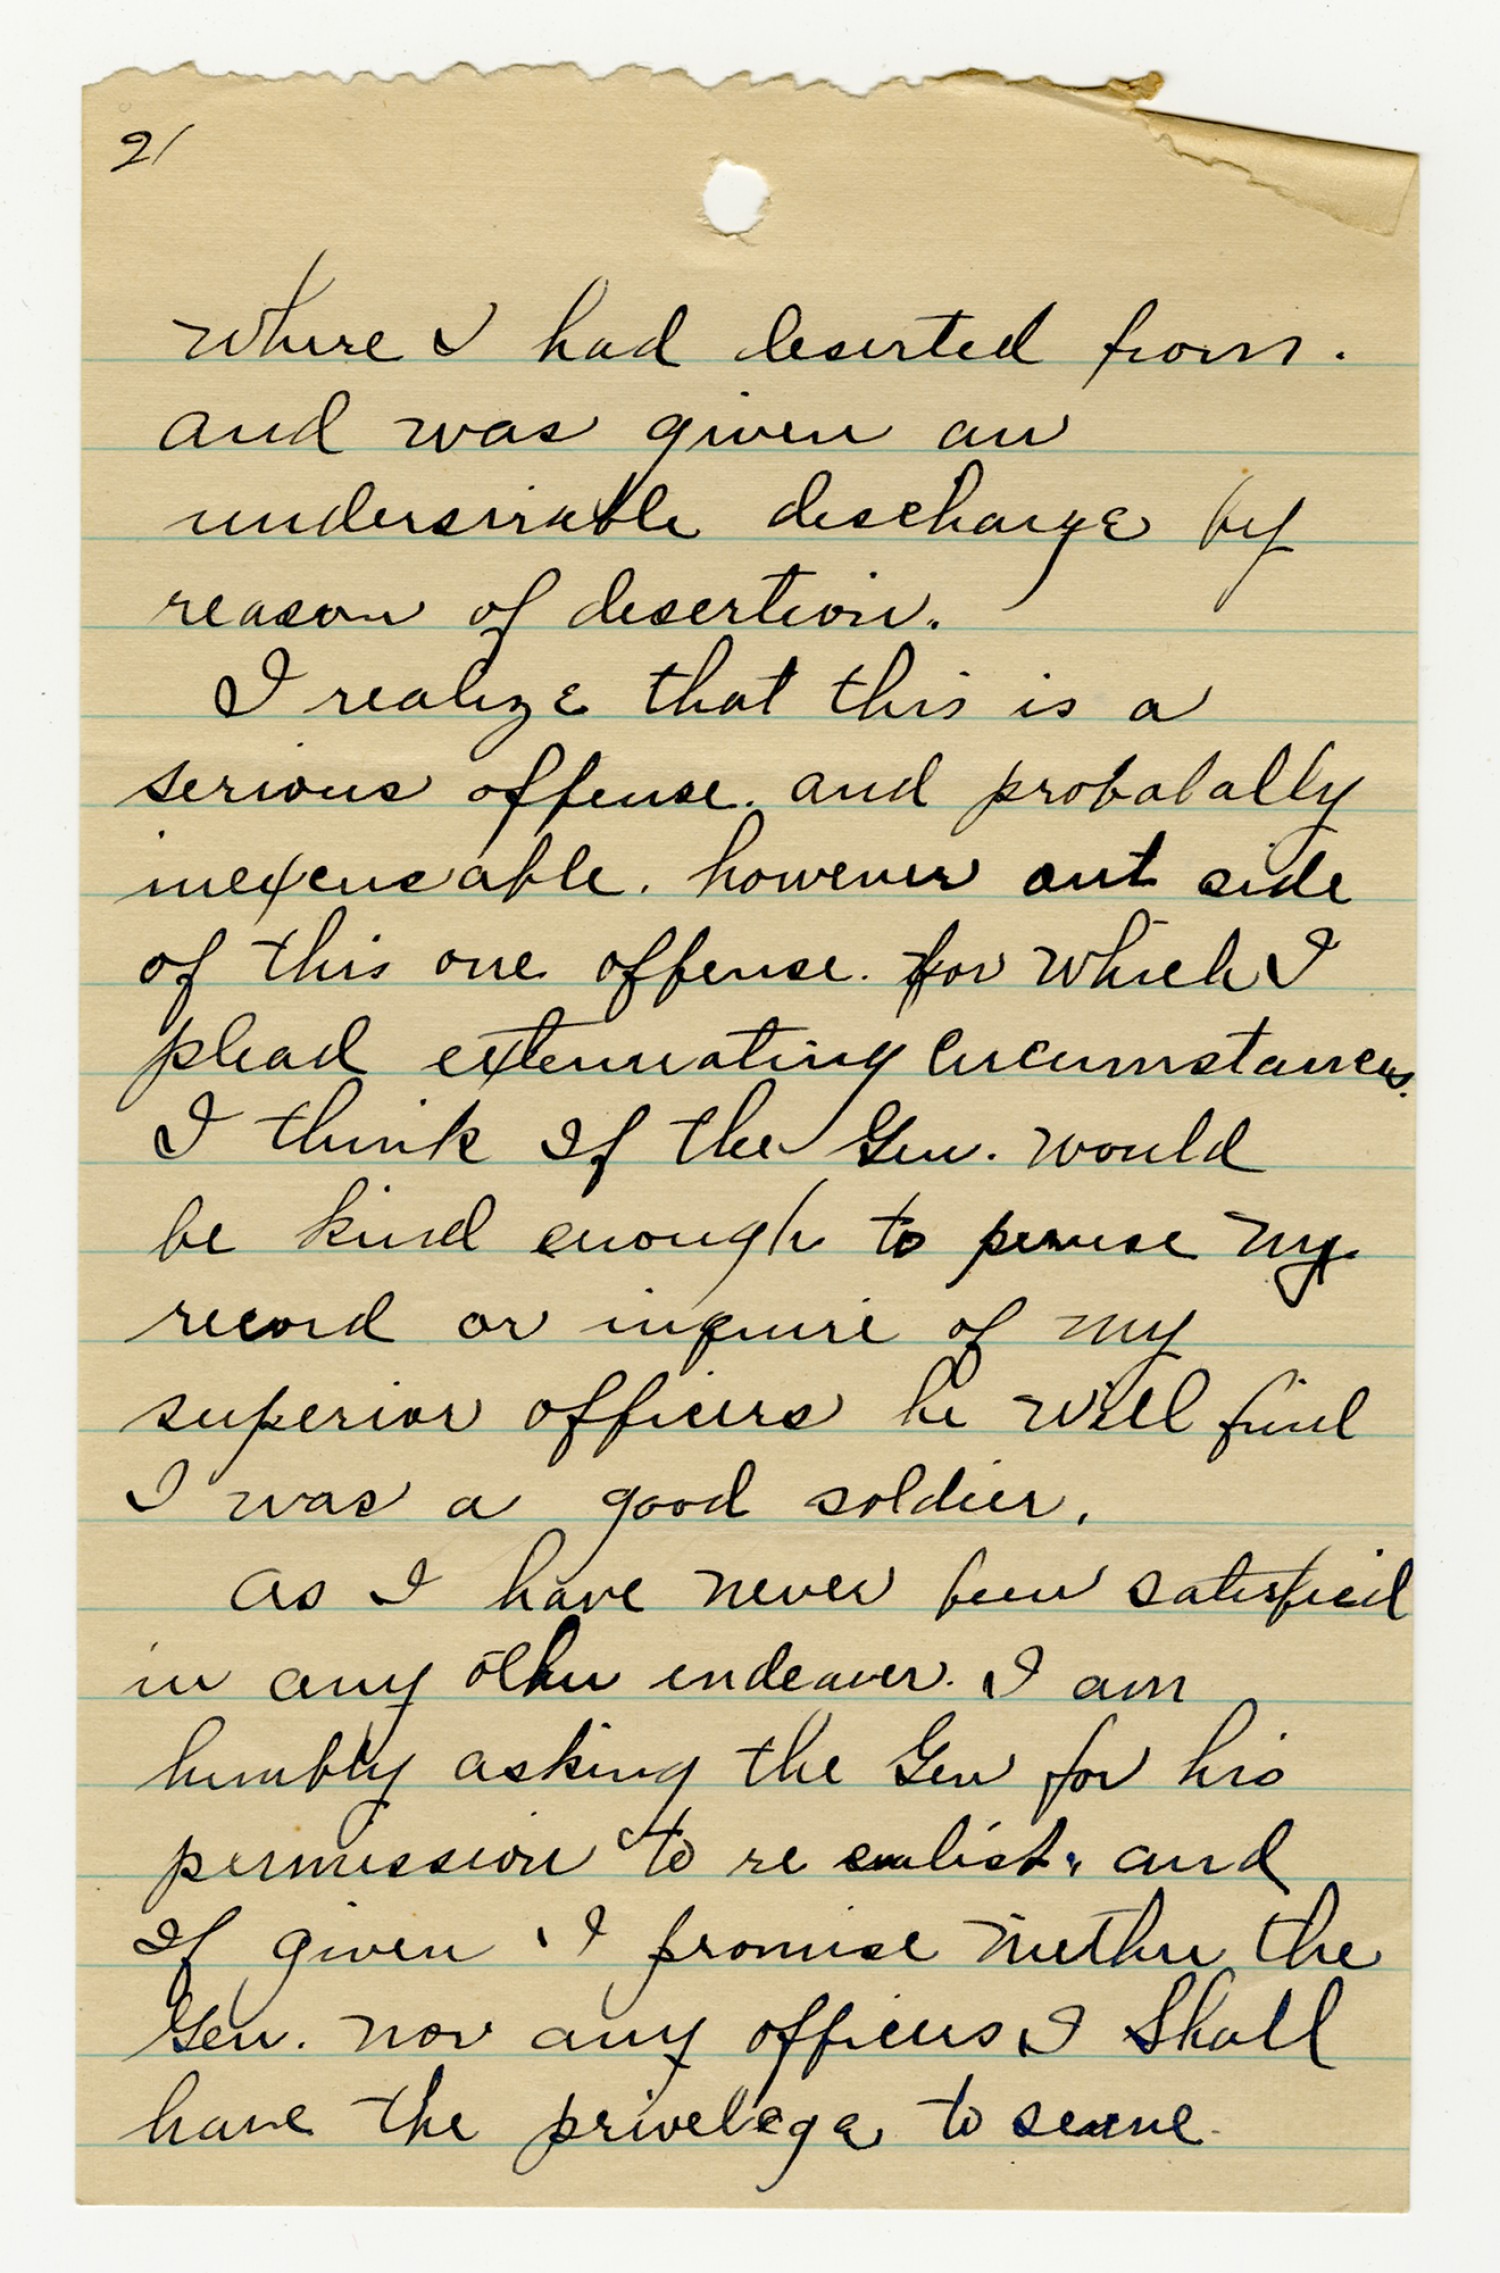 2/
where I had deserted from.
and was given an
undersirable descharge by
reason of desertion.
I realize that this is a
serious offense. and probabally
inexcusable. however out side
of this one offense. for which I
plead extenuating circumstances.
I think If the Gen. would
be kind enough to peruse my
record or inquire of my
superior officers he will find
I was a good soldier.
As I have never been satisfied
in any other endeaver. I am
humbly asking the Gen for his
permission to re enlist, and
If given, I promise niether the
Gen. nor any officers I Shall
have the privelege to serve